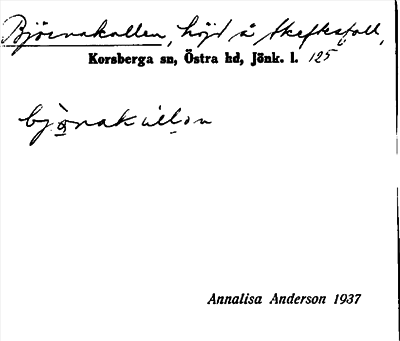 Björnakullen, höjd å Skeftesfall,
Korsberga sn, Östra hd, Jönk. l. 125
Annalisa Anderson 1937